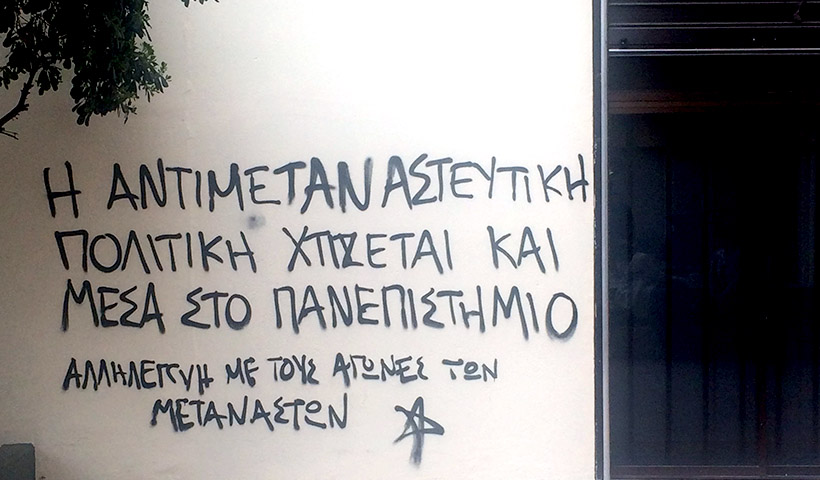 Η ΑΝΤΙΜΕΤΑΝΑΣΤΕΥΤΙΚΗ
ΠΟΛΙΤΙΚΗ ΧΤΙΖΕΤΑΙ ΚΑΙ
ΜΕΣΑ ΣΤΟ ΠΑΝΕΠΙΣΤΗΜΙΟ
ΑΛΛΗΛΕΓΓΥΗ ΜΕ ΤΟΥΣ ΑΓΩΝΕΣ ΤΩΝ
ΜΕΤΑΝΑΣΤΩΝ